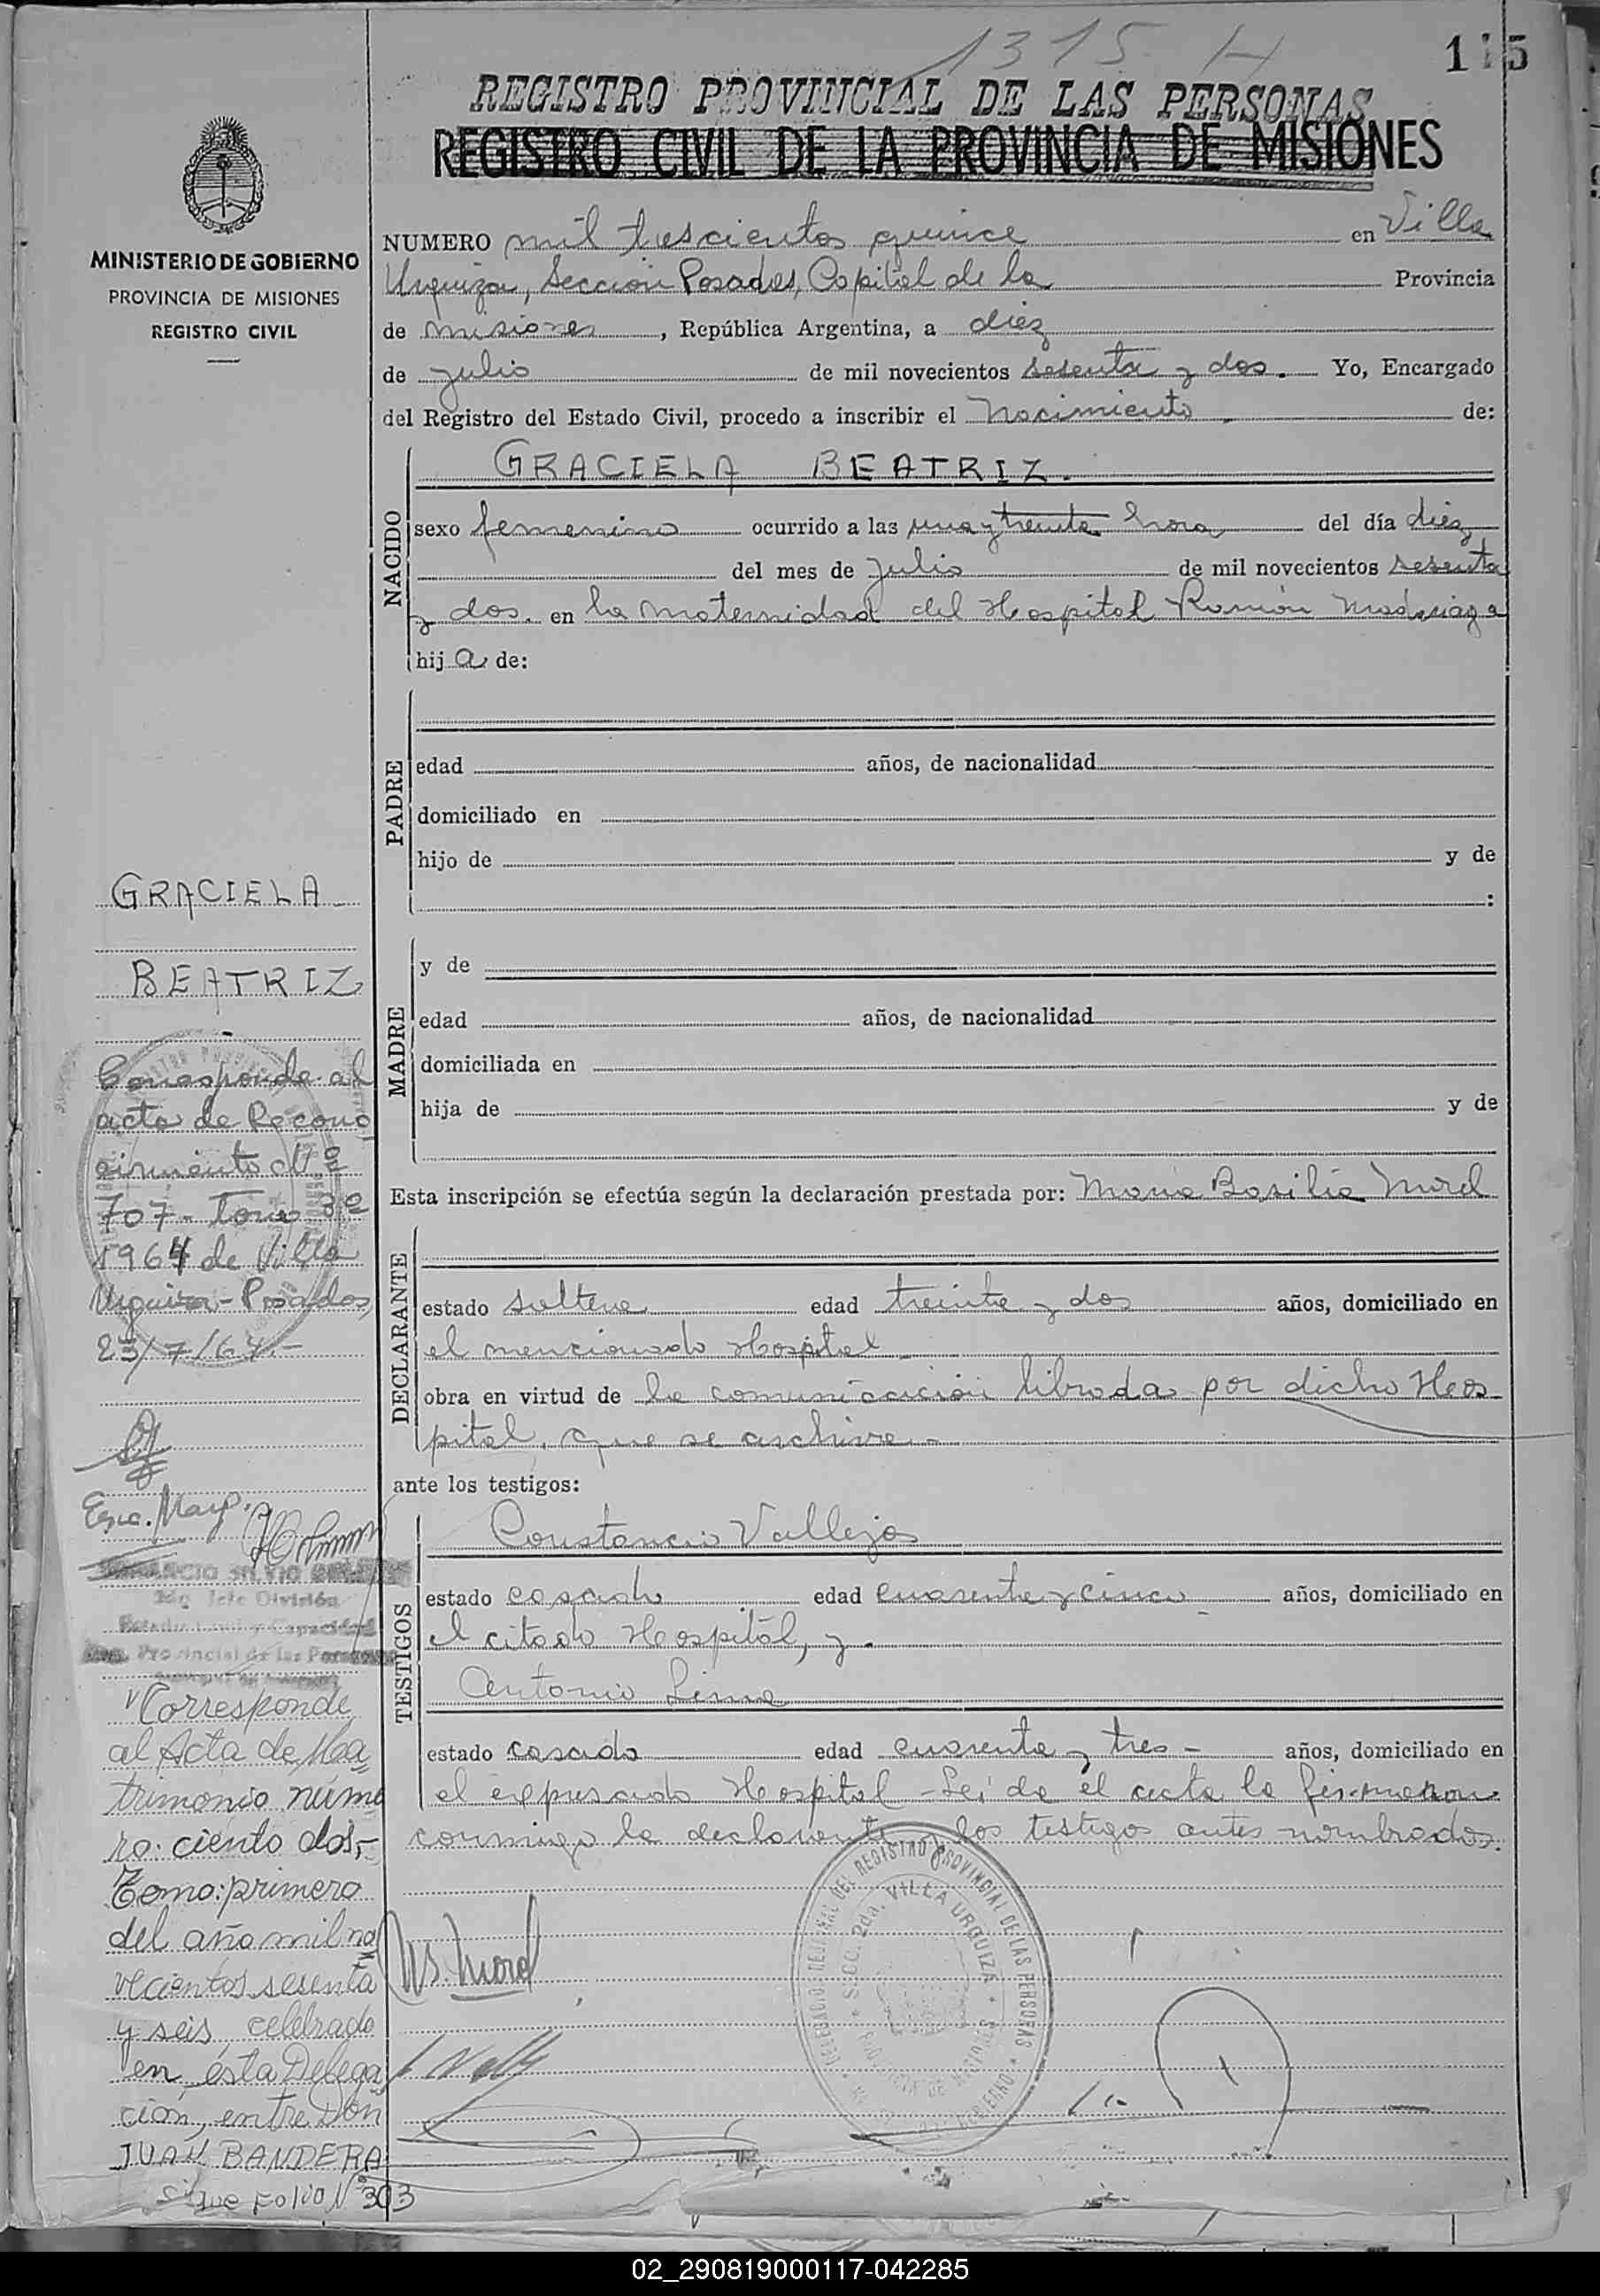 1315 H
115
REGISTRO PROVINCIAL DE LAS PERSONAS
REGISTRO CIVIL DE LA PROVINCIA DE MISIONES
MINISTERIO DE GOBIERNO
PROVINCIA DE MISIONES
REGISTRO CIVIL
NUMERO mil trescientos quince en Villa
Urquiza, Sección Posadas, Capital de la Provincia
de Misiones, República Argentina, a diez
de julio de mil novecientos sesenta y dos. Yo, Encargado
del Registro del Estado Civil, procedo a inscribir el Nacimiento de:
NACIDO
GRACIELA BEATRIZ.
sexo femenino ocurrido a las una y treinta hora del día diez
del mes de julio de mil novecientos sesenta
y dos. en la Maternidad del Hospital Ramón Madariaga
hija de:
PADRE
edad años, de nacionalidad
domiciliado en
hijo de y de
:
MADRE
y de
edad años, de nacionalidad
domiciliada en
hija de y de
Esta inscripción se efectúa según la declaración prestada por: María Basilia Morel
DECLARANTE
estado soltera edad treinta y dos años, domiciliado en
el mencionado Hospital
obra en virtud de la comunicación librada por dicho Hos
pital, que se archiva.-
ante los testigos:
TESTIGOS
Constancio Vallejos
estado casado edad cuarenta y cinco años, domiciliado en
el citado Hospital, y.
Antonio Lima
estado casado edad cuarenta y tres - años, domiciliado en
el expresado Hospital - Leída el acta la firmaron
conmigo la declarante y los testigos antes nombrados.
M. B. Morel
DELEGACION DEL REGISTRO PROVINCIAL DE LAS PERSONAS
SECC. 2da. VILLA URQUIZA
GRACIELA
BEATRIZ
Corresponde al
acta de Recono
cimiento Nº
707 - Tomo 3º
1964 de Villa
Urquiza - Posadas,
23/7/64.-
SILVIO
Jefe División
Estado Civil y Capacidad
Reg. Provincial de las Personas
Corresponde
al Acta de Ma
trimonio núme
ro: ciento dos,-
Tomo: primero
del año mil no
vecientos sesenta
y seis, celebrado
en ésta Delega
ción, entre Don
JUAN BANDERA
Sigue Folio Nº 303
02_290819000117-042285